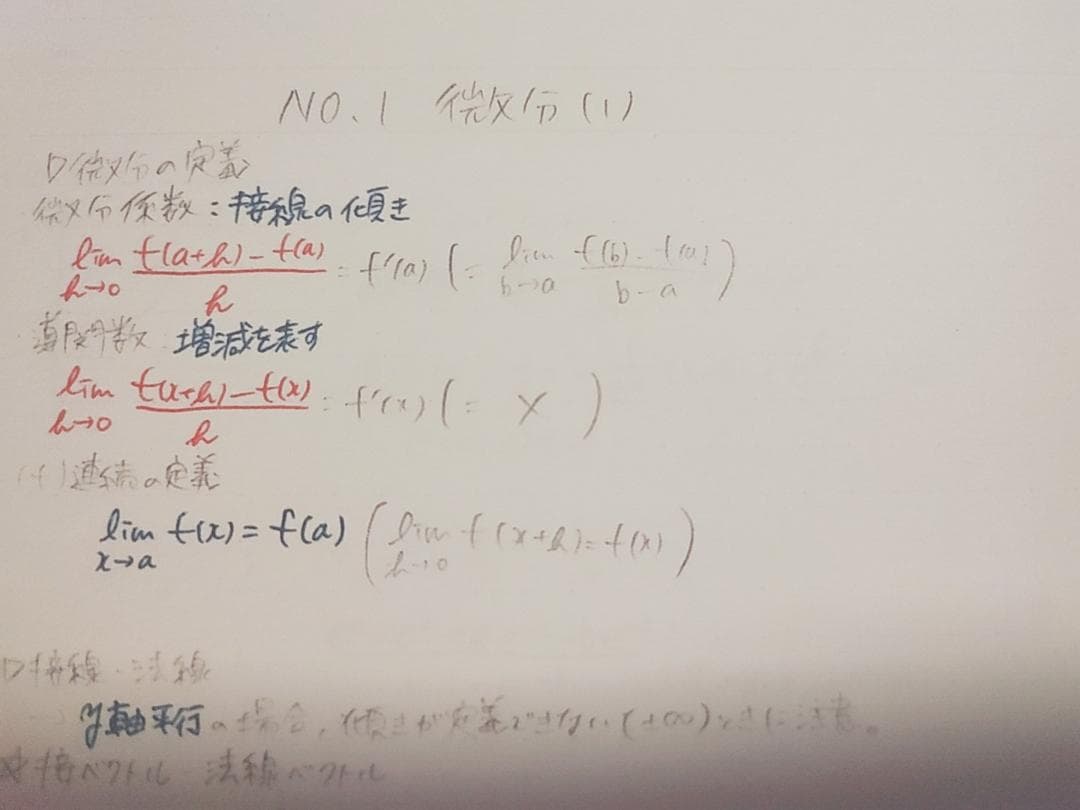 NO.1 微分(1)
▷微分の定義
微分係数：接線の傾き
lim h→0 f(a+h)-f(a) / h = f'(a) (= lim b→a f(b)-f(a) / b-a)
導関数 増減を表す
lim h→0 f(x+h)-f(x) / h = f'(x) (= × )
連続の定義
lim x→a f(x) = f(a) (lim h→0 f(x+h) = f(x))
▷接線・法線
y軸平行の場合，傾きが定義できない(±∞)ときに注意。
接ベクトル 法線ベクトル